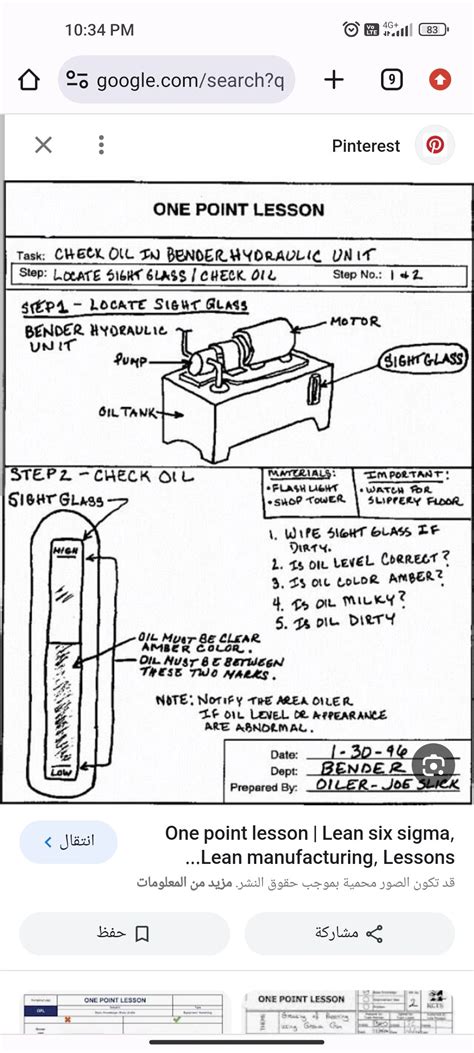 10:34 PM
Vo LTE 4G+ 83
google.com/search?q
9
Pinterest
ONE POINT LESSON
Task: CHECK OIL IN BENDER HYDRAULIC UNIT
Step: LOCATE SIGHT GLASS / CHECK OIL Step No.: 1 & 2
STEP 1 - LOCATE SIGHT GLASS
BENDER HYDRAULIC
UNIT
MOTOR
PUMP
SIGHT GLASS
OIL TANK
STEP 2 - CHECK OIL
SIGHT GLASS
MATERIALS:
• FLASH LIGHT
• SHOP TOWER
IMPORTANT:
• WATCH FOR
SLIPPERY FLOOR
HIGH
1. WIPE SIGHT GLASS IF
DIRTY.
2. IS OIL LEVEL CORRECT?
3. IS OIL COLOR AMBER?
4. IS OIL MILKY?
5. IS OIL DIRTY
OIL MUST BE CLEAR
AMBER COLOR.
OIL MUST BE BETWEEN
THESE TWO MARKS.
NOTE: NOTIFY THE AREA OILER
IF OIL LEVEL OR APPEARANCE
ARE ABNORMAL.
LOW
Date: 1-30-96
Dept: BENDER
Prepared By: OILER - JOE SLICK
One point lesson | Lean six sigma,
Lean manufacturing, Lessons...
انتقال
قد تكون الصور محمية بموجب حقوق النشر. مزيد من المعلومات
مشاركة
حفظ
ONE POINT LESSON
OPL
ONE POINT LESSON
2